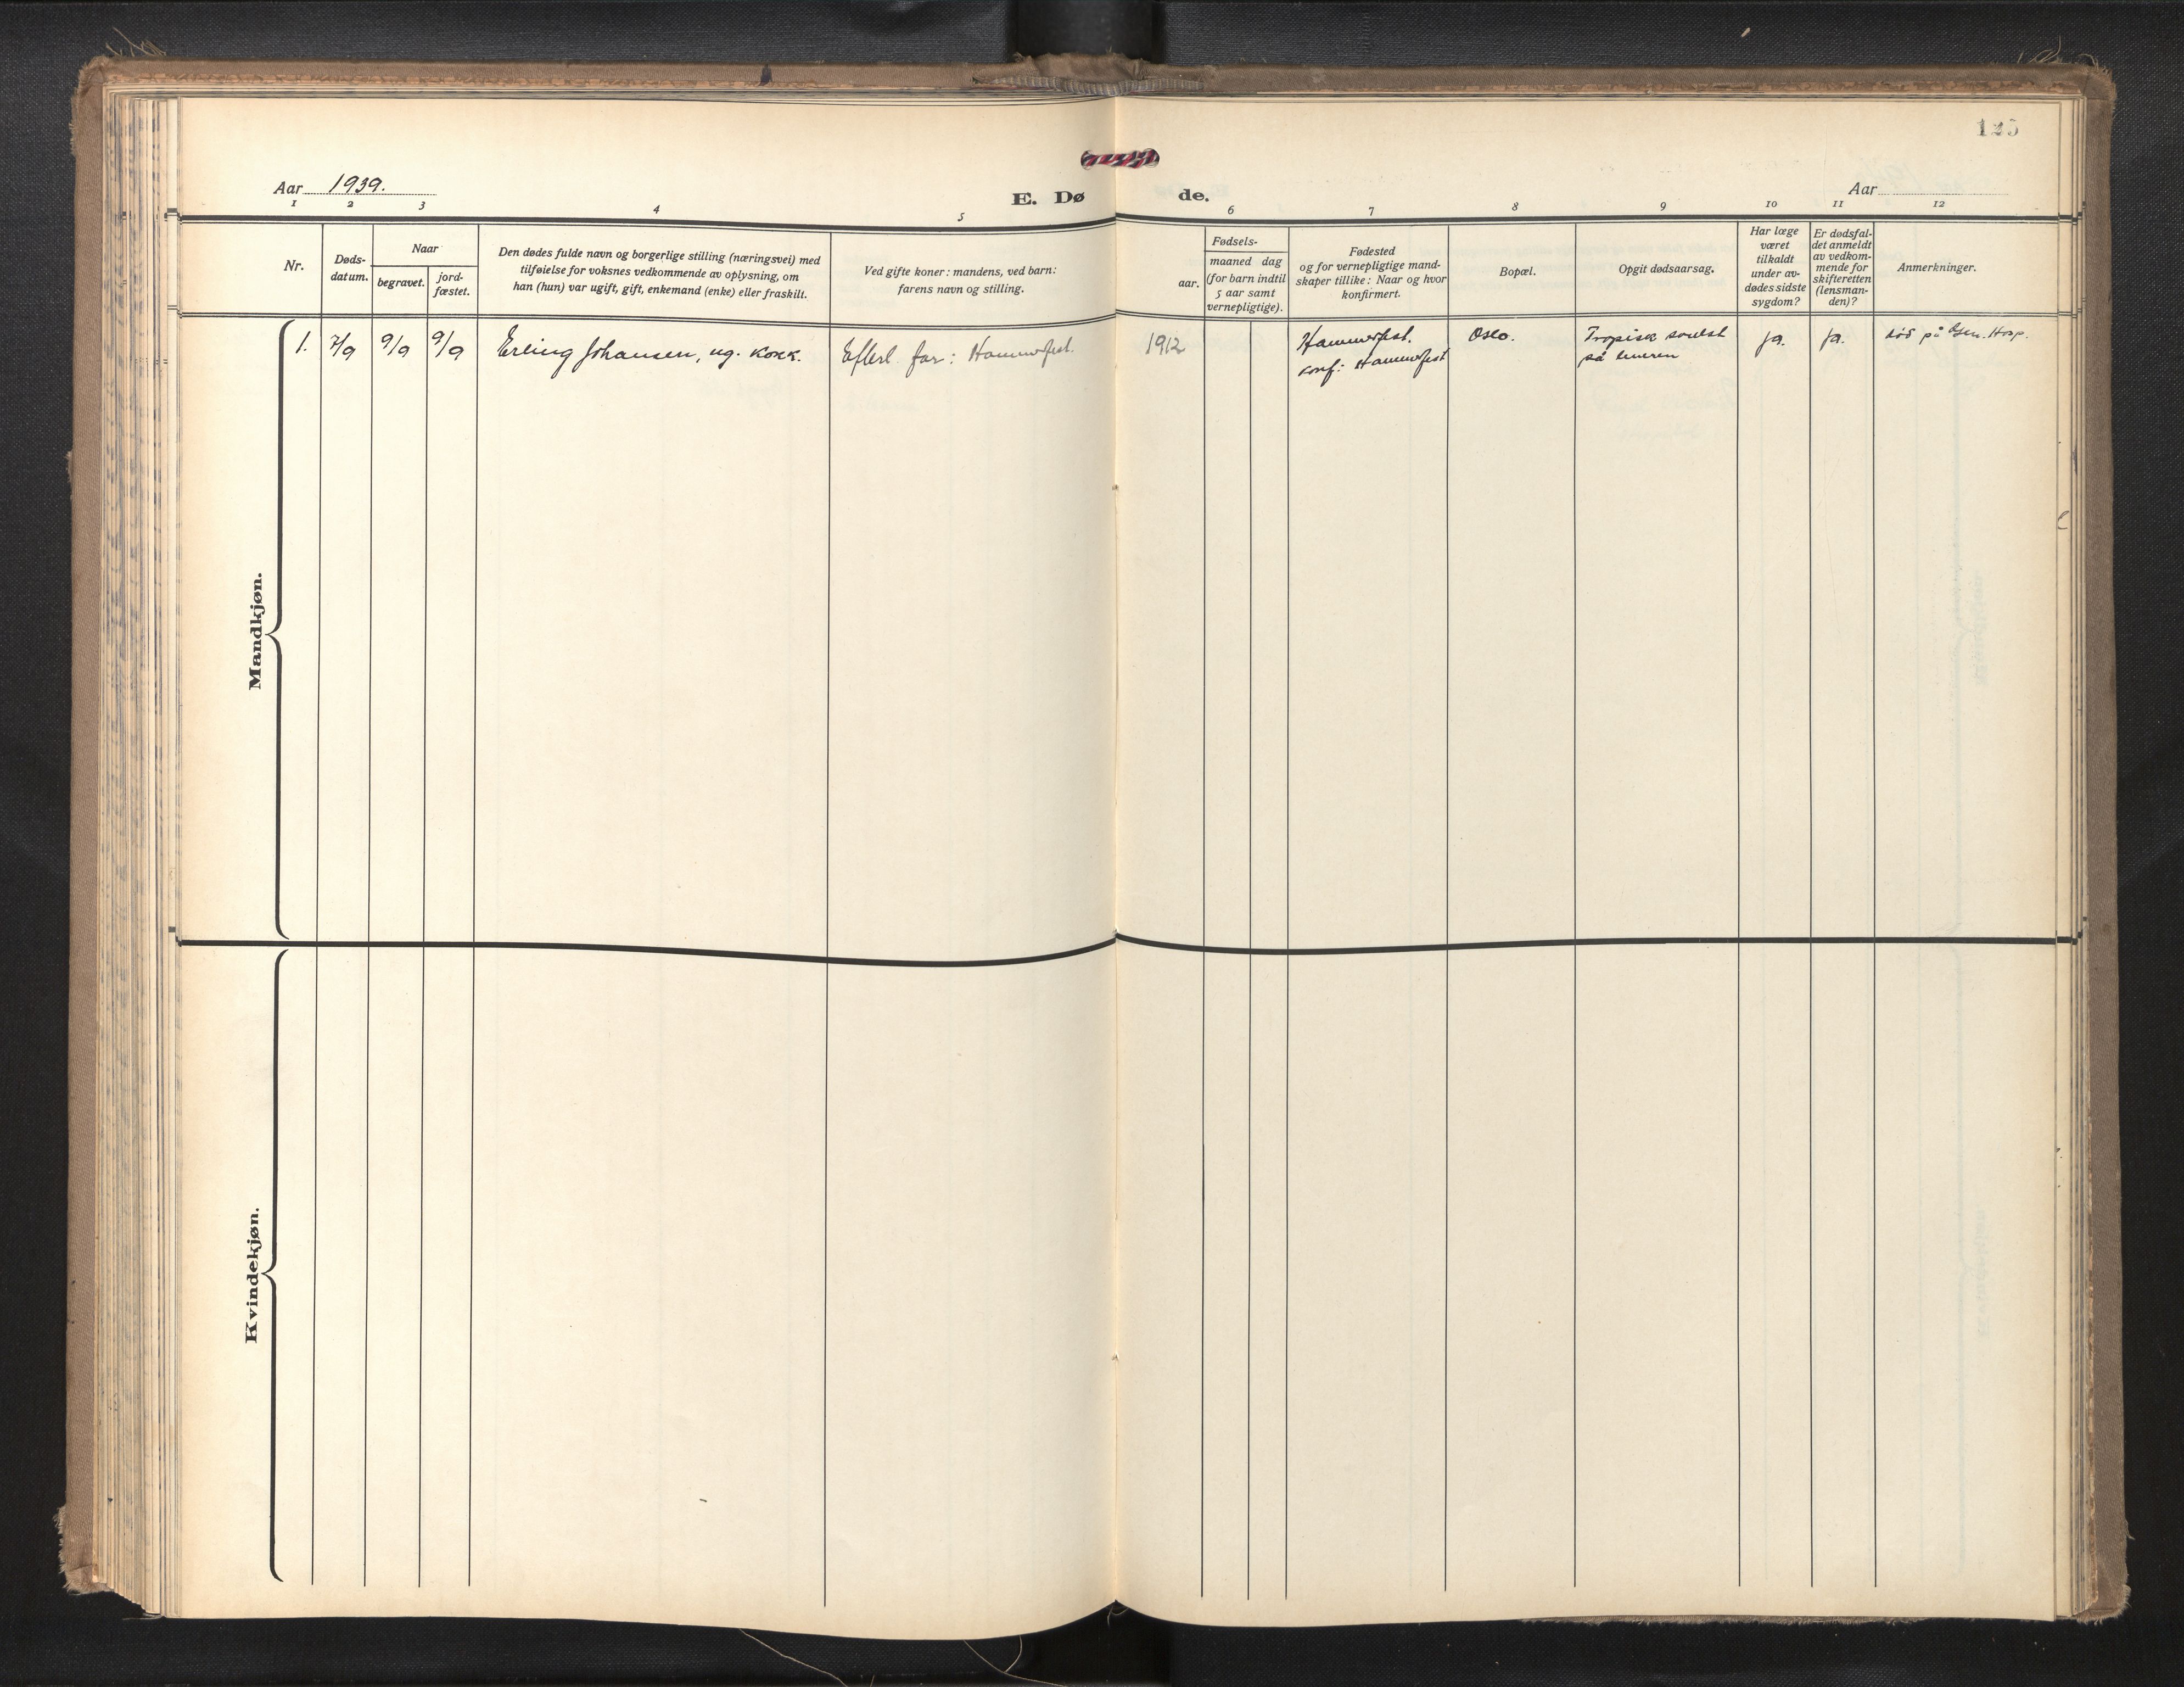 125
Aar 1939.
E. Dø de.
Aar
1 2 3 4 5 6 7 8 9 10 11 12
Nr.
Døds-
datum.
Naar
begravet.
jord-
fæstet.
Den dødes fulde navn og borgerlige stilling (næringsvei) med
tilføielse for voksnes vedkommende av oplysning, om
han (hun) var ugift, gift, enkemand (enke) eller fraskilt.
Ved gifte koner: mandens, ved barn:
farens navn og stilling.
Fødsels-
aar.
maaned dag
(for barn indtil
5 aar samt
vernepligtige).
Fødested
og for vernepligtige mand-
skaper tillike: Naar og hvor
konfirmert.
Bopæl.
Opgit dødsaarsag.
Har læge
været
tilkaldt
under av-
dødes sidste
sygdom?
Er dødsfal-
det anmeldt
av vedkom-
mende for
skifteretten
(lensman-
den)?
Anmerkninger.
Mandkjøn.
1. 7/9 9/9 9/9 Erling Johansen, ug. kokk. Efterl. far: Hammerfest. 1912 Hammerfest. Oslo. Tropisk svulst ja. ja. død på Hosp.
konf: Hammerfest på leveren
Kvindekjøn.